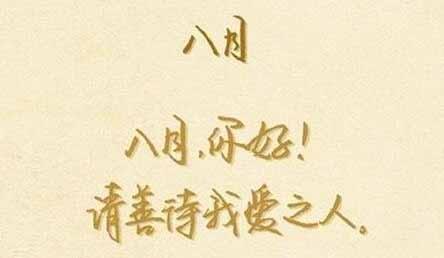 八月
八月,你好!
请善待我爱之人。